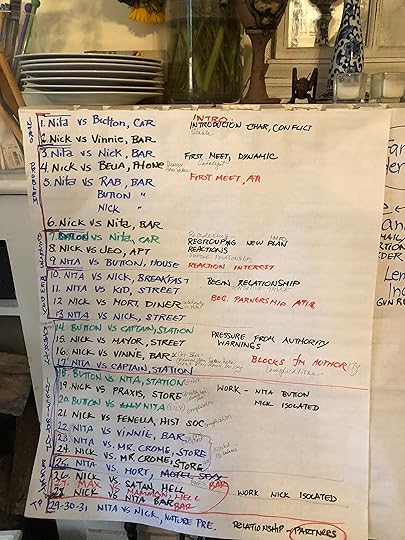 1. Nita vs Button, CAR INTRO
INTRODUCTION CHAR, CONFLICT
2. Nick vs Vinnie, BAR
3. Nita vs Nick, BAR FIRST MEET, DYNAMIC
4. Nick vs BELLA, PHONE
5. Nita vs RAB, BAR FIRST MEET,
BUTTON "
NICK "
6. Nick vs Nita, BAR
7. BUTTON vs Nita, CAR REGROUPING NEW PLAN
8. NICK vs JEO, APT REACTIONS
9. NITA vs BUTTON, HOUSE REACTION INTEREST
10. NITA vs NICK, BREAKFAST BEGIN RELATIONSHIP
11. NITA vs KID, STREET
12 NICK vs MORT, DINER BEG. PARNERSHIP
13 NITA vs NICK, STREET
14. BUTTON vs CAPTAIN, STATION PRESSURE FROM AUTHORITY
15. NICK vs MAYOR, STREET WARNINGS
16. NICK vs VINNIE, BAR BLOCKS FM AUTHORITY
17. NITA vs CAPTAIN, STATION complications
18. BUTTON vs NITA, STATION WORK - NITA BUTTON
19. NICK vs PRAXIS, STORE NICK ISOLATED
20. BUTTON vs LILY NITA
21. NICK vs FENELLA, HIST SOC
22 NITA vs VINNIE, BAR
23. NITA vs MR. CROME, STORE
24. NICK vs MR CROME, STORE
25. NITA vs. MORT,
26. NICK vs SATAN, HELL BAR
27. MAX vs MAMMON, HELL WORK NICK ISOLATED
28. NICK vs NITA BAR
29-30-31 NITA vs NICK, NATURE PRE.
RELATIONSHIP - PARTNERS